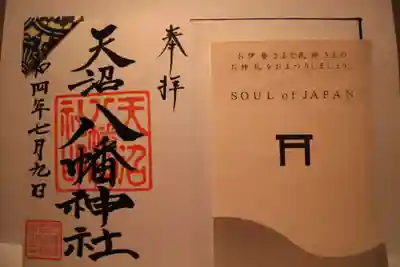 奉拝
天沼八幡神社
令和四年七月九日
お伊勢さまと氏神さまの
お神札をおまつりしましょう。
SOUL of JAPAN